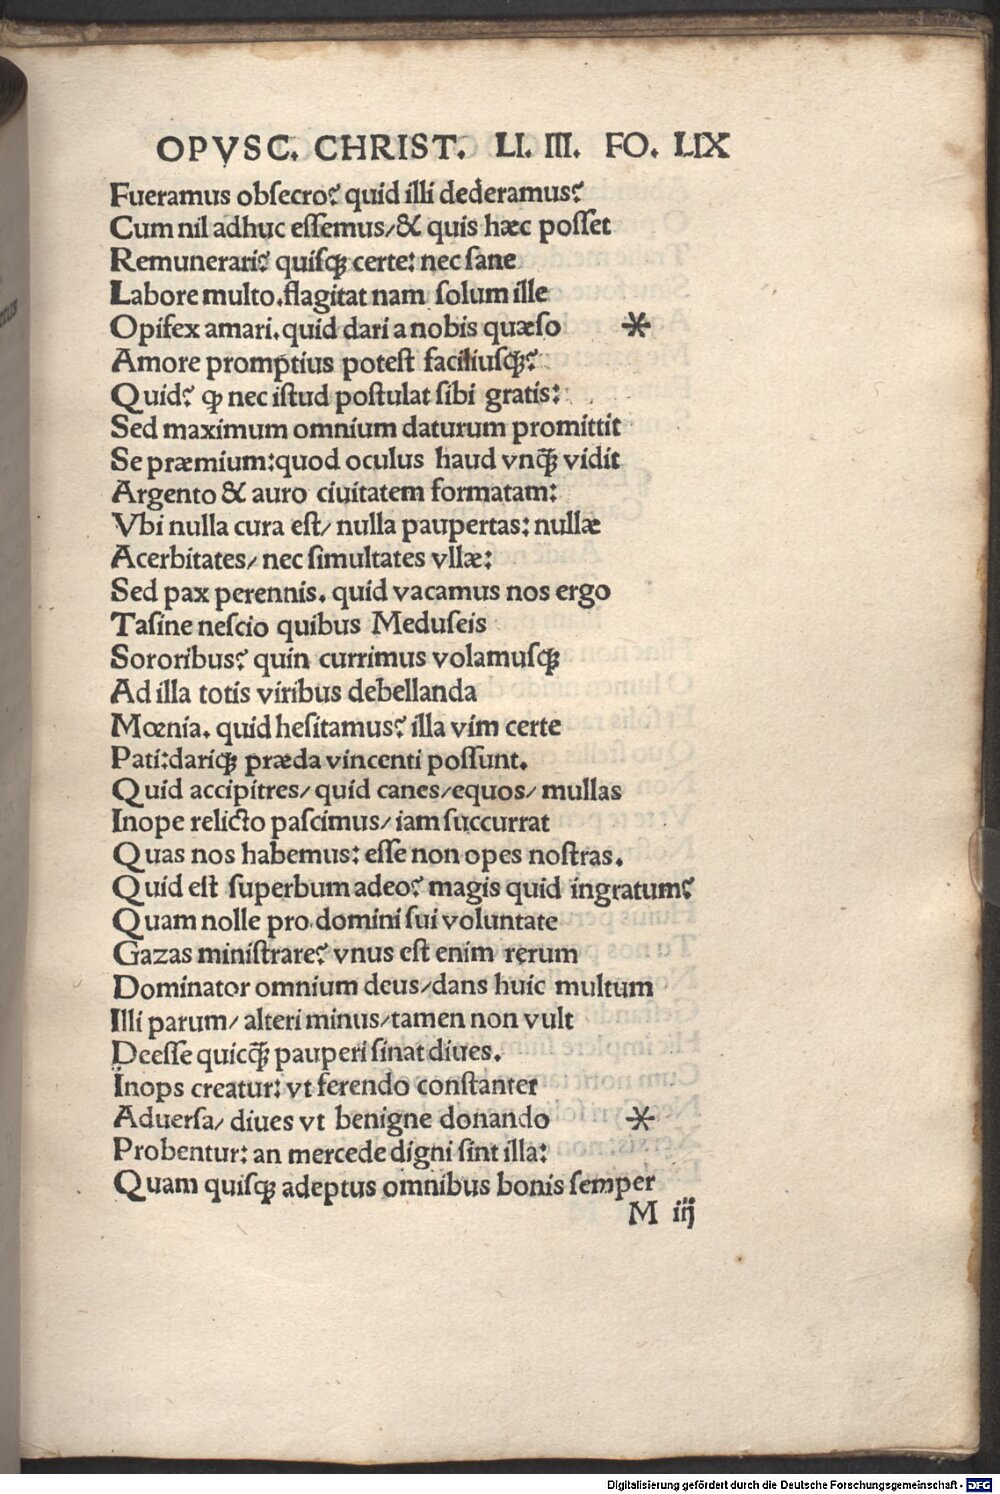 OPVSC. CHRIST. LI. III. FO. LIX
Fueramus obsecro? quid illi dederamus?
Cum nil adhuc essemus/& quis hæc posset
Remunerari? quisqȝ certe: nec sane
Labore multo.flagitat nam solum ille
Opifex amari.quid dari a nobis quæso *
Amore promptius potest faciliusqȝ?
Quid? ꝙ nec istud postulat sibi gratis:
Sed maximum omnium daturum promittit
Se præmium:quod oculus haud vnq̃ȝ vidit
Argento & auro ciuitatem formatam:
Vbi nulla cura est/ nulla paupertas: nullæ
Acerbitates/ nec simultates vllæ:
Sed pax perennis. quid vacamus nos ergo
Tasine nescio quibus Meduseis
Sororibus? quin currimus volamusqȝ
Ad illa totis viribus debellanda
Mœnia. quid hesitamus? illa vim certe
Pati:dariqȝ præda vincenti possunt.
Quid accipitres/ quid canes/equos/ mullas
Inope relicto pascimus/ iam succurrat
Quas nos habemus: esse non opes nostras.
Quid est superbum adeo? magis quid ingratum?
Quam nolle pro domini sui voluntate
Gazas ministrare? vnus est enim rerum
Dominator omnium deus/dans huic multum
Illi parum/ alteri minus/tamen non vult
Deesse quicq̃ȝ pauperi sinat diues.
Inops creatur: vt ferendo constanter
Aduersa/ diues vt benigne donando *
Probentur: an mercede digni sint illa:
Quam quisqȝ adeptus omnibus bonis semper
M iij
Digitalisierung gefördert durch die Deutsche Forschungsgemeinschaft - DFG